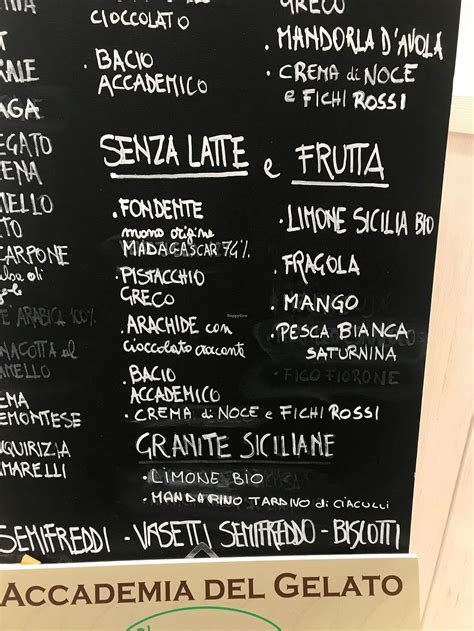 CIOCCOLATO
. BACIO
ACCADEMICO
GRECO
. MANDORLA D'AVOLA
. CREMA di NOCE
e FICHI ROSSI
SENZA LATTE e FRUTTA
. FONDENTE
mono origine
MADAGASCAR 74%
. PISTACCHIO
GRECO
. ARACHIDE con
cioccolato croccante
. BACIO
ACCADEMICO
. CREMA di NOCE e FICHI ROSSI
. LIMONE SICILIA BIO
. FRAGOLA
. MANGO
. PESCA BIANCA
SATURNINA
. FICO FIORONE
GRANITE SICILIANE
. LIMONE BIO
. MANDARINO TARDIVO di CIACULLI
SEMIFREDDI - VASETTI SEMIFREDDO - BISCOTTI
ACCADEMIA DEL GELATO